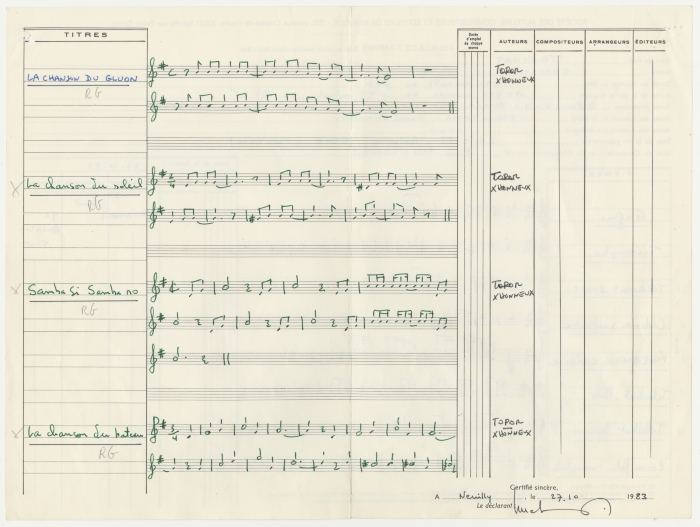 TITRES
Durée d'emploi de chaque œuvre
AUTEURS
COMPOSITEURS
ARRANGEURS
ÉDITEURS
LA CHANSON DU GLUON
RG
TOPOR
XHONNEUX
La chanson du soleil
RG
TOPOR
XHONNEUX
Samba Si Samba no
RG
TOPOR
XHONNEUX
La chanson du bateau
RG
TOPOR
XHONNEUX
Certifié sincère,
A Neuilly, le 27.10 1983
Le déclarant